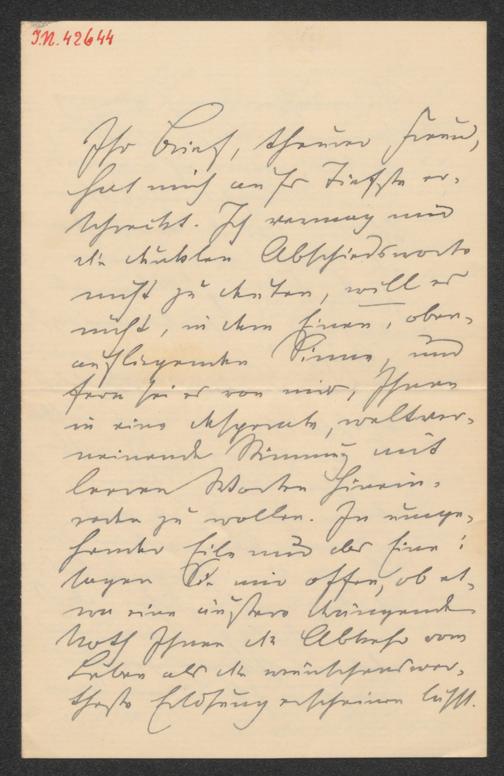 I.N. 42644
Ihr Brief, theurer Freund,
hat mich aufs Tiefste er-
schreckt. Ich vermag mir
die dunklen Abschiedsworte
nicht zu deuten, will es
nicht, in dem Einen, oben-
aufliegenden Sinne, und
fern sei es von mir, Ihnen
in eine desperate, weltver-
neinende Stimmung mit
leeren Worten hinein-
reden zu wollen. In umge-
hender Eile nur das Eine:
sagen Sie mir offen, ob et-
wa eine äußere drängende
Noth Ihnen die Abkehr vom
Leben als die wünschenswer-
theste Erlösung erscheinen läßt.